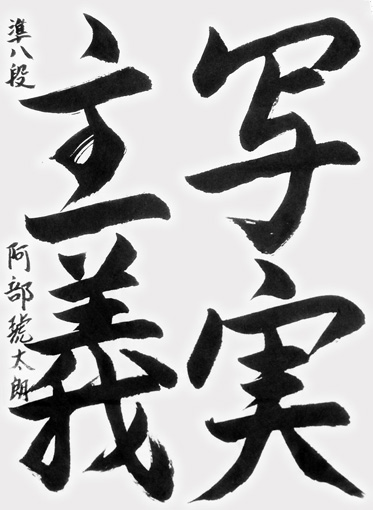 写実
主義
準八段 阿部號太朗